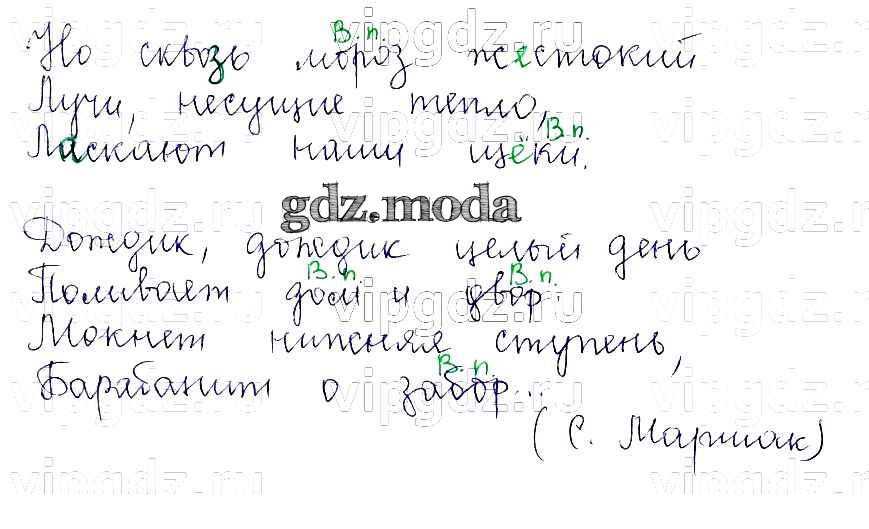 В.п.
Но сквозь мороз жестокий
Лучи, несущие тепло,
В.п.
Ласкают наши щёки.
gdz.moda
Дождик, дождик целый день
В.п. В.п.
Поливает дом и двор.
Мокнет нижняя ступень,
В.п.
Барабанит о забор...
(С. Маршак)
vipgdz.ru